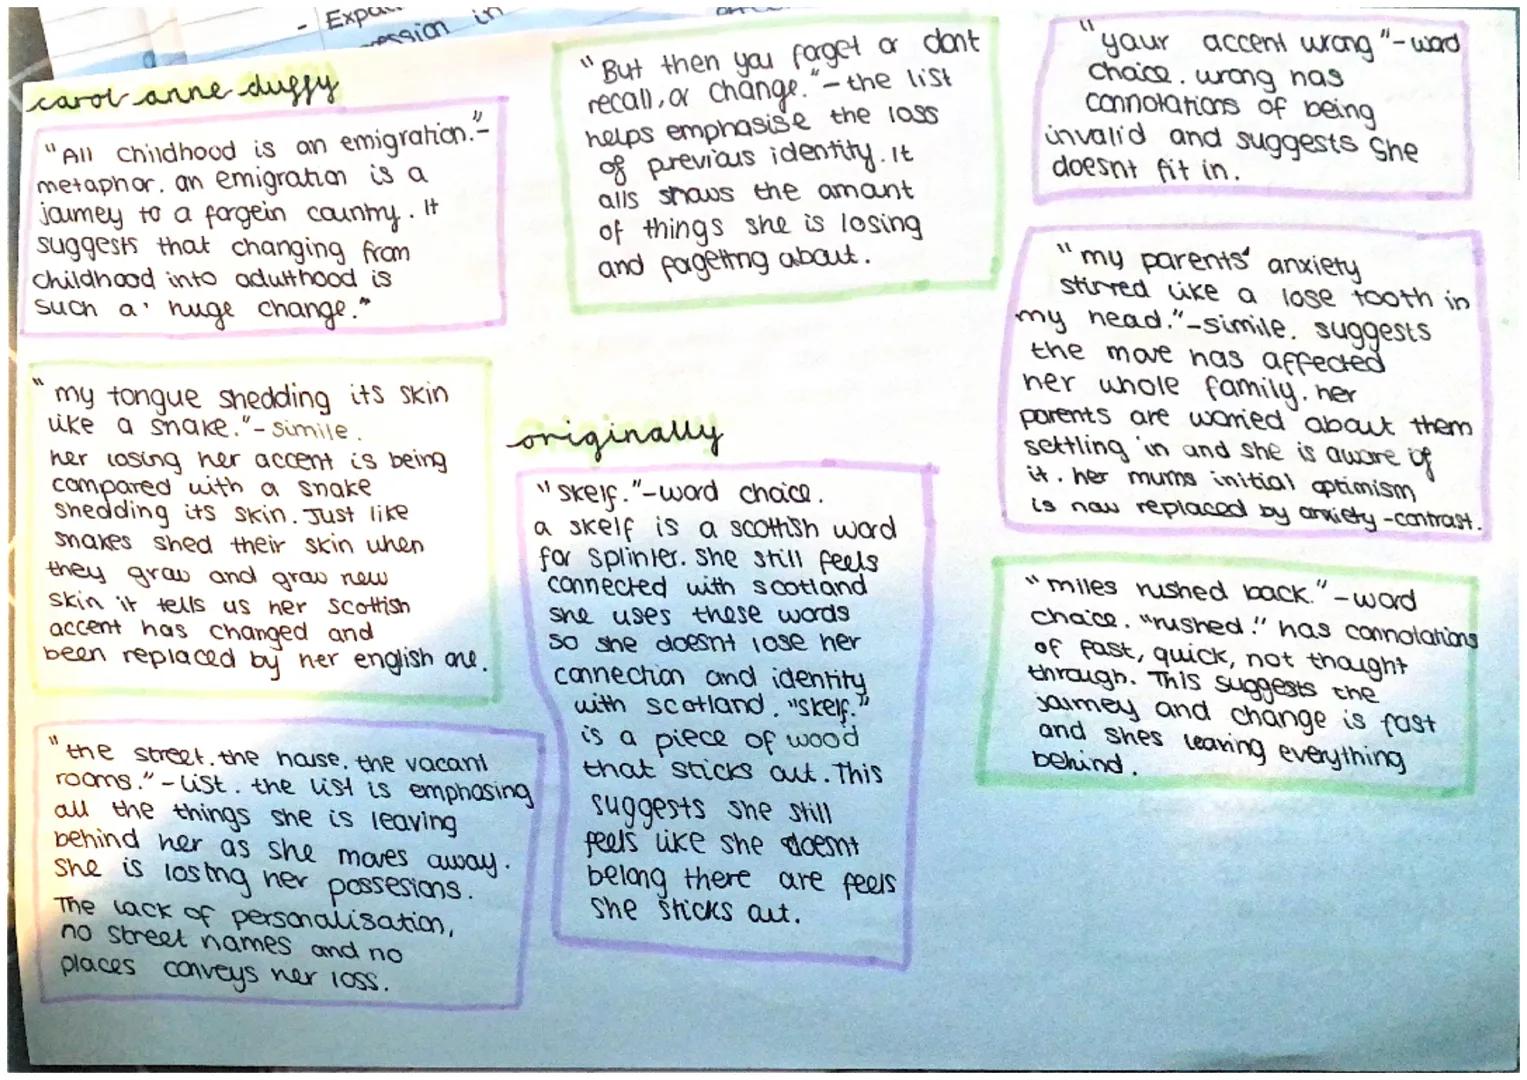 - Expa
ession in
carol anne duffy
"All childhood is an emigration."-
metaphor. an emigration is a
journey to a forgein country. It
suggests that changing from
childhood into adulthood is
such a huge change."
"my tongue shedding its skin
like a snake."-simile.
her losing her accent is being
compared with a snake
shedding its skin. Just like
snakes shed their skin when
they grow and grow new
skin it tells us her scottish
accent has changed and
been replaced by her english one.
"the street. the house. the vacant
rooms."-list. the list is emphasing
all the things she is leaving
behind her as she moves away.
she is losing her possesions.
The lack of personalisation,
no street names and no
places conveys her loss.
"But then you forget or dont
recall, or change."-the list
helps emphasise the loss
of previous identity. It
alls shows the amount
of things she is losing
and forgetting about.
originally
"skelf."-word choice.
a skelf is a scottish word
for splinter. she still feels
connected with scotland
she uses these words
so she doesnt lose her
connection and identity
with scotland. "skelf."
is a piece of wood
that sticks out. This
suggests she still
feels like she doesnt
belong there are feels
she sticks out.
"your accent wrong"-word
choice. wrong has
connotations of being
invalid and suggests she
doesnt fit in.
"my parents' anxiety
stirred like a lose tooth in
my head."-simile. suggests
the move has affected
her whole family. her
parents are worried about them
settling in and she is aware of
it. her mums initial optimism
is now replaced by anxiety-contrast.
"miles rushed back."-word
choice. "rushed." has connotations
of fast, quick, not thought
through. This suggests the
journey and change is fast
and shes leaving everything
behind.